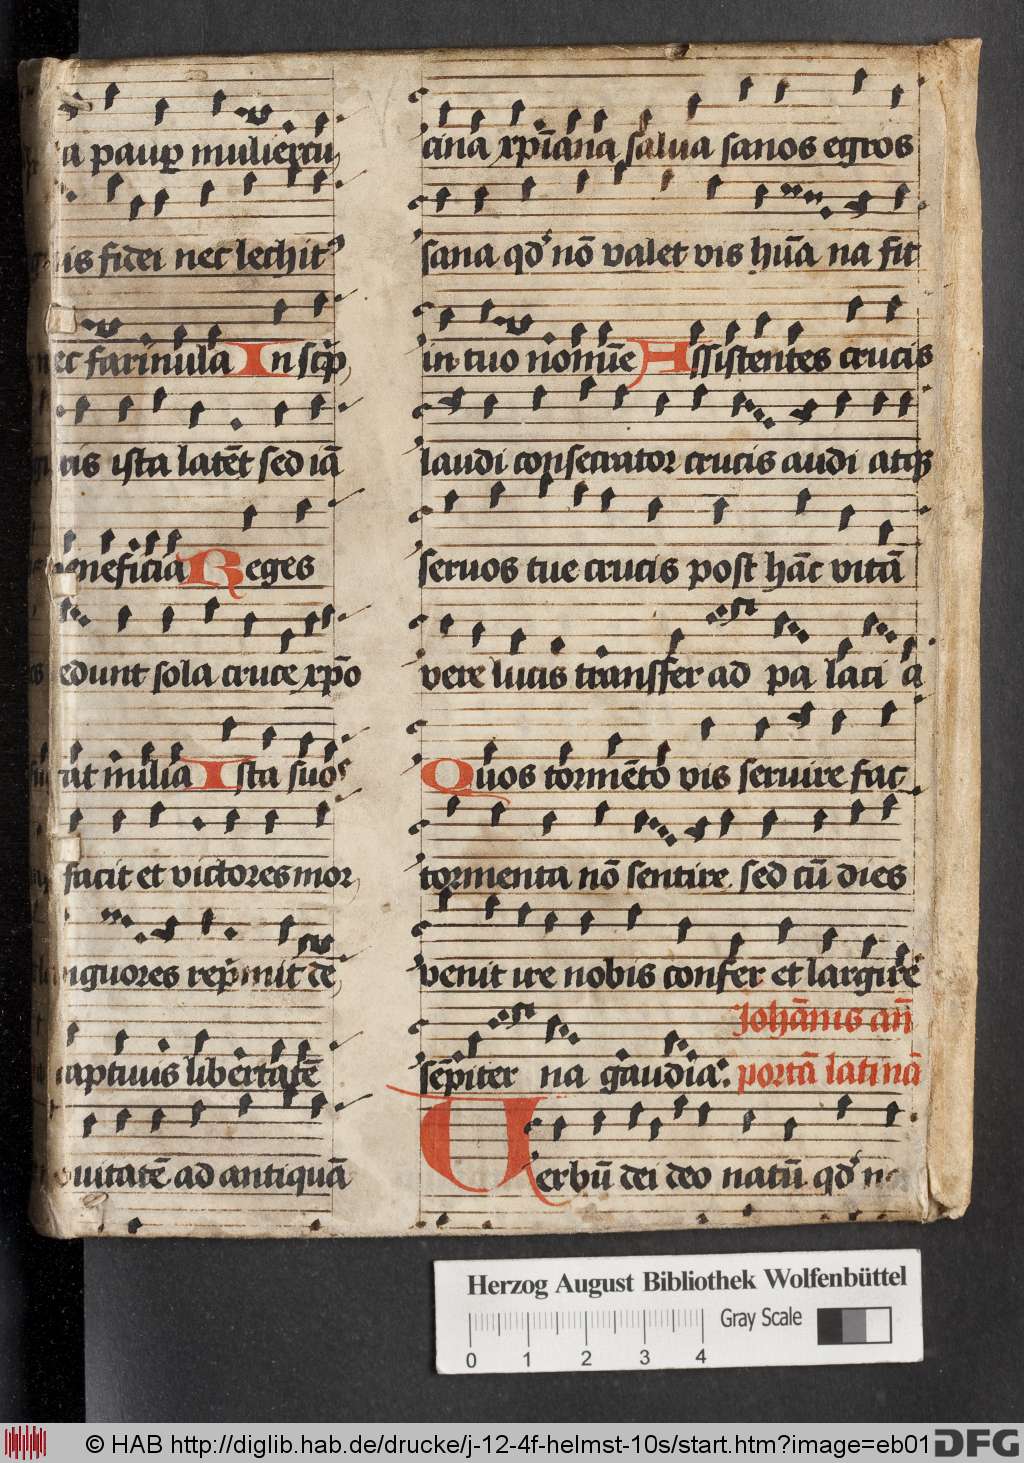 a paup mulier cu
is fidei nec lechit⁹
ec farinula In scp
tis ista latēt sed iā
eneficia Reges
edunt sola cruce xpo
at milia Ista suos
facit et victores mor
nguores rep̄mit de
captiuis libertatē
uitatē ad antiquā
cina xp̄iana salua sanos egros
sana qd̓ nō valet vis hūa na fit
in tuo nomīe Assistentes crucis
laudi consecrator crucis audi atqꝫ
seruos tue crucis post hāc vitā
vere lucis transfer ad pa laci a
Quos tormēto vis seruire fac
tormenta nō sentire sed cū dies
venit ire nobis confer et largire
Johānis añ
sēpiter na gaudia. portā latinā
Uerbū dei deo natū qd̓
Herzog August Bibliothek Wolfenbüttel
Gray Scale
0 1 2 3 4
© HAB http://diglib.hab.de/drucke/j-12-4f-helmst-10s/start.htm?image=eb01
DFG